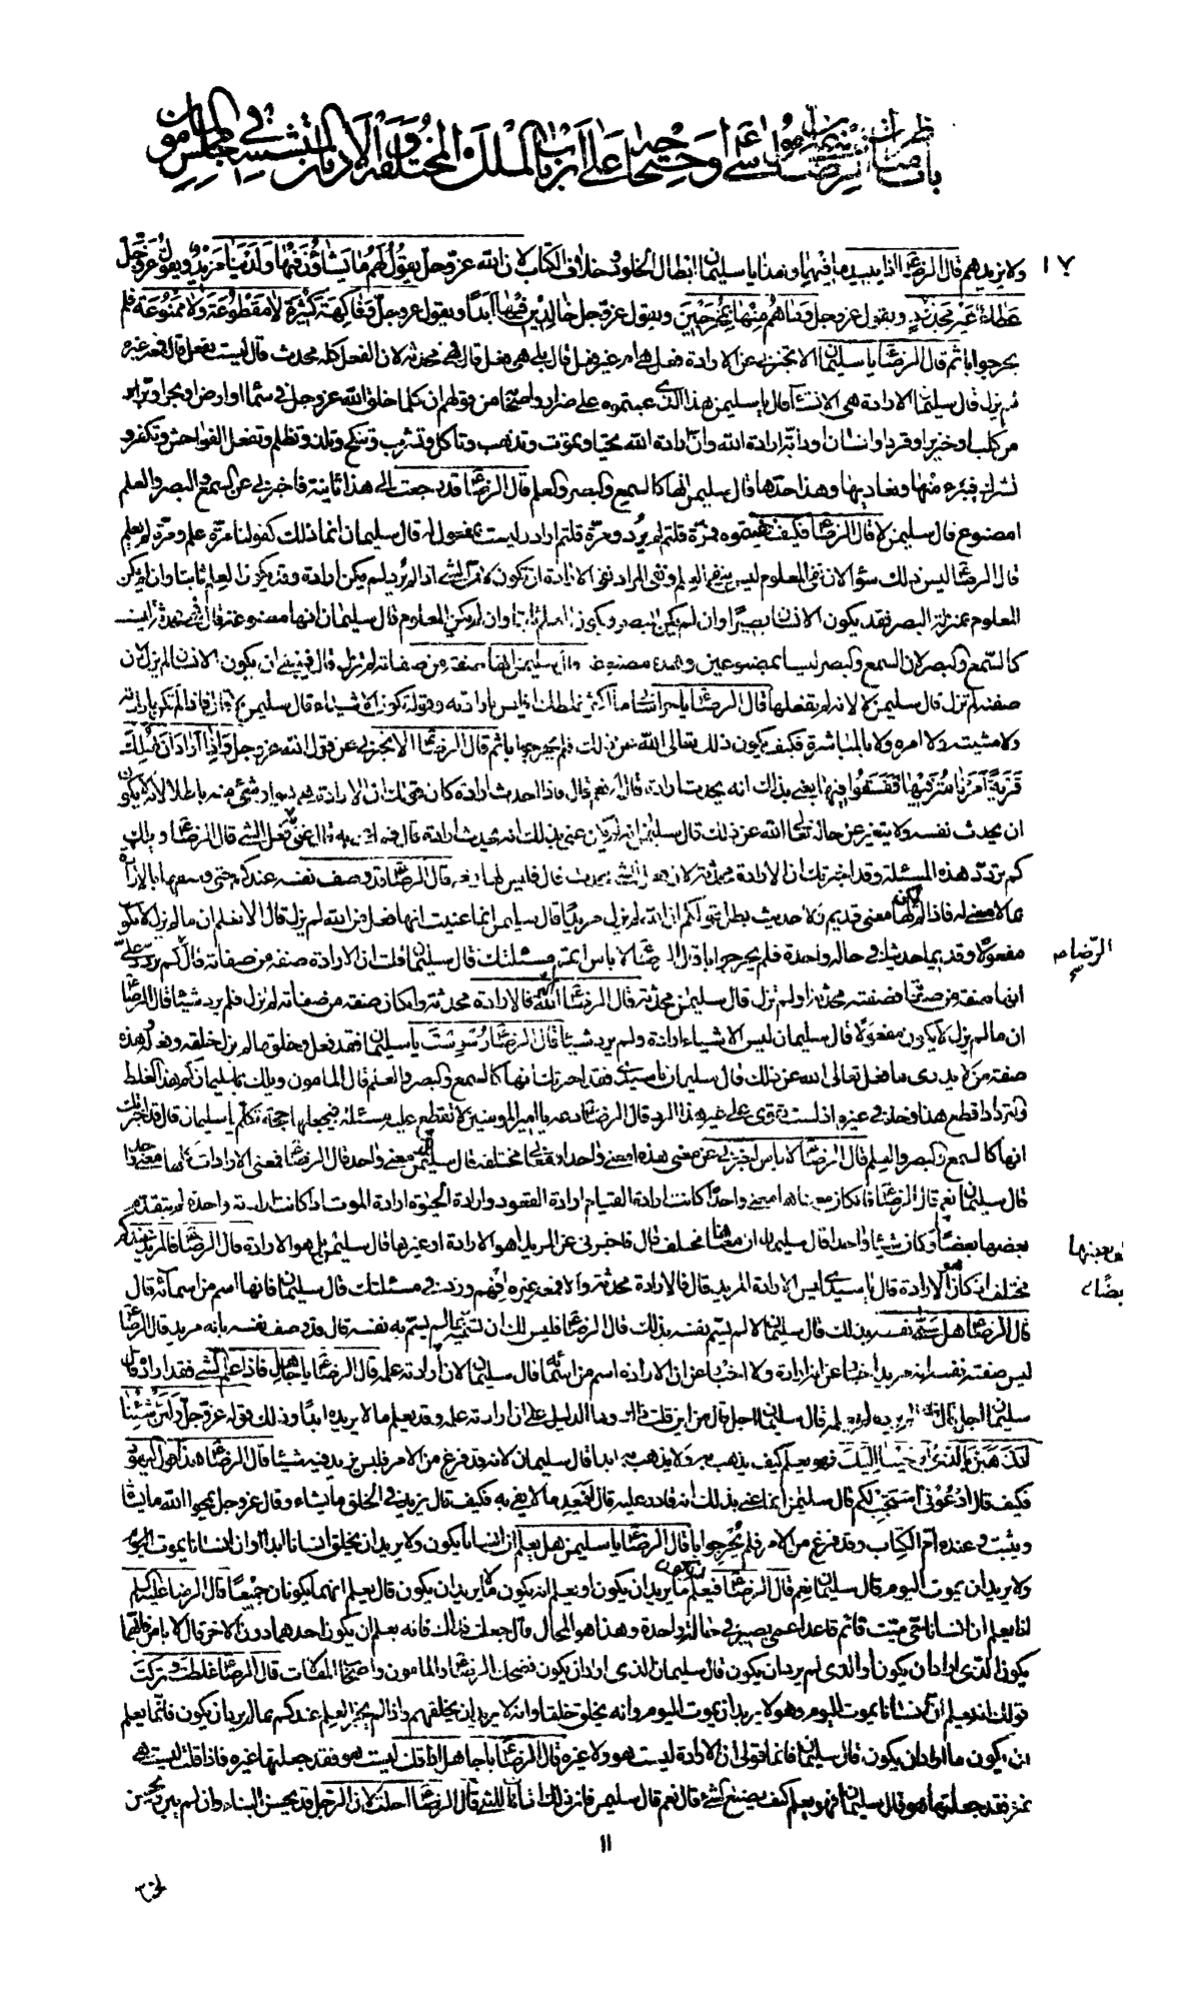 باب مناظرات الرضا عليه السلام واحتجاجه على أرباب الملل المختلفة والأديان المتشتتة في مجلس المأمون
١٧
ولا يزيدهم قال الرضا ع اذا يبيد ما فيها وهذا يا سليمان ابطال الخلود وخلاف الكتاب لان الله عز وجل يقول لهم ما يشاؤن فيها ولدينا مزيد ويقول عز وجل
عطاء غير مجذوذ ويقول عز وجل وما هم منها بمخرجين ويقول عز وجل خالدين فيها ابدا ويقول عز وجل وفاكهة كثيرة لا مقطوعة ولا ممنوعة فلم
يحر جوابا ثم قال الرضا ع يا سليمان الا تخبرني عن الارادة فعل هي ام غير فعل قال بلى هي فعل قال فهي محدثة لان الفعل كله محدث قال ليست بفعل قال فمعه غيره
لم يزل قال سليمان الارادة هي الانشاء قال يا سليمن هذا الذى عبتموه على ضرار واصحابه من قولهم ان كلما خلق الله عز وجل في سماء او ارض او بحر او بر
من كلب او خنزير او قرد او انسان او دابة ارادة الله وان ارادة الله تحيا وتموت وتذهب وتاكل وتشرب وتنكح وتلد وتظلم وتفعل الفواحش وتكفر و
تشرك فتبرء منها وتعاديها وهذا حدها قال سليمن انها كالسمع والبصر والعلم قال الرضا ع قد رجعت الى هذا ثانية فاخبرني عن السمع والبصر والعلم
امصنوع قال سليمن لا قال الرضا ع فكيف نفيتموه فمرة قلتم لم يرد ومرة قلتم اراد وليست بمفعول له قال سليمان انما ذلك كقولنا مرة علم ومرة لم يعلم
قال الرضا ع ليس ذلك سواء لان نفى المعلوم ليس بنفى العلم ونفى المراد نفى الارادة ان تكون لان الشئ اذا لم يرد لم يكن ارادة وقد يكون العلم ثابتا وان لم يكن
المعلوم بمنزلة البصر فقد يكون الانسان بصيرا وان لم يكن المبصر ويكون العلم ثابتا وان لم يكن المعلوم قال سليمان انها مصنوعة قال فهى محدثة ليست
كالسمع والبصر لان السمع والبصر ليسا بمصنوعين وهذه مصنوعة قال سليمن انها صفة من صفاته لم تزل قال فينبغى ان يكون الانسان لم يزل لان
صفته لم تزل قال سليمن لا لانه لم يفعلها قال الرضا ع يا خراسانى ما اكثر غلطك افليس بارادته وقوله تكون الاشياء قال سليمن لا قال فاذا لم تكن بارادته
ولا مشيته ولا امره ولا بالمباشرة فكيف يكون ذلك تعالى الله عن ذلك فلم يحر جوابا ثم قال الرضا ع الا تخبرنى عن قول الله عز وجل واذا اردنا ان نهلك
قرية امرنا مترفيها ففسقوا فيها يعنى بذلك انه يحدث ارادة قال له نعم قال فاذا احدث ارادة كان قولك ان الارادة هى هو او شئ منه باطلا لانه لا يكون
ان يحدث نفسه ولا يتغير عن حاله تعالى الله عن ذلك قال سليمن انه لم يكن عنى بذلك انه يحدث ارادة قال فما عنى به قال عنى فعل الشئ قال الرضا ع ويلك
كم تردد هذه المسئلة وقد اخبرتك ان الارادة محدثة لان فعل الشئ محدث قال فليس لها معنى قال الرضا ع قد وصف نفسه عندكم حتى وصفها بالارادة
بما لا معنى له فاذا لم يكن لها معنى قديم ولا حديث بطل قولكم ان الله لم يزل مريدا قال سليمان انما عنيت انها فعل من الله لم يزل قال الا تعلم ان ما لم يزل لا يكون
مفعولا وقديما حديثا في حالة واحدة فلم يحر جوابا قال الرضا ع لا باس اتمم مسئلتك قال سليمان قلت ان الارادة صفة من صفاته قال كم تردد على
الرضا ع
انها صفة من صفاته فصفته محدثة او لم تزل قال سليمن محدثة قال الرضا ع الله اكبر فالارادة محدثة وان كانت صفة من صفاته لم تزل فلم يرد شيئا قال الرضا ع
ان ما لم يزل لا يكون مفعولا قال سليمان ليس الاشياء ارادة ولم يرد شيئا قال الرضا ع وسوست يا سليمان فقد فعل وخلق ما لم يزل خلقه وفعله وهذه
صفة من لا يدرى ما فعل تعالى الله عن ذلك قال سليمان يا سيدى فقد اخبرتك انها كالسمع والبصر والعلم قال المامون ويلك يا سليمان كم هذا الغلط
والترداد اقطع هذا وخذ في غيره اذ لست تقوى على غير هذا الرد قال الرضا ع دعه يا امير المومنين لا تقطع عليه مسئلته فيجعلها حجة تكلم يا سليمان قال قد اخبرتك
انها كالسمع والبصر والعلم قال الرضا ع لا باس اخبرنى عن معنى هذه امعنى واحد ام معانى مختلفة قال سليمن معنى واحد قال الرضا ع فمعنى الارادات كلها معنى واحد
قال سليمان نعم قال الرضا ع فان كان معناها معنى واحدا كانت ارادة القيام ارادة القعود وارادة الحيوة ارادة الموت اذا كانت ارادته واحدة لم يتقدم
بعضها بعضا وكان شيئا واحدا قال سليمان ان معناها مختلف قال فاخبرنى عن المريد اهو الارادة او غيرها قال سليمن بل هو الارادة قال الرضا ع فالمريد عندكم
مختلف اذ كان هو الارادة قال يا سيدى ليس الارادة المريد قال فالارادة محدثة والا فمعه غيره افهم وزد في مسئلتك قال سليمان فانها اسم من اسمائه قال
قال الرضا ع هل سمى نفسه بذلك قال سليمان لا لم يسم نفسه بذلك قال الرضا ع فليس لك ان تسميه بما لم يسم به نفسه قال قد وصف نفسه بانه مريد قال الرضا ع
ليس صفته نفسه انه مريد اخبارا عن انه ارادة ولا اخبارا عن ان الارادة اسم من اسمائه قال سليمان لان ارادته علمه قال الرضا ع يا جاهل فاذا علم الشئ فقد اراده قال
سليمان اجل قال فاذا لم يرده لم يعلمه قال سليمان اجل قال من اين قلت ذاك وما الدليل على ان ارادته علمه وقد يعلم ما لا يريده ابدا وذلك قوله عز وجل ولئن شئنا
لنذهبن بالذى اوحينا اليك فهو يعلم كيف يذهب به ولا يذهب به ابدا قال سليمان لانه قد فرغ من الامر فليس يزيد فيه شيئا قال الرضا ع هذا قول اليهود
فكيف قال ادعونى استجب لكم قال سليمن انما عنى بذلك انه قادر عليه قال افيعد ما لا يفى به فكيف قال يزيد في الخلق ما يشاء وقال عز وجل يمحوا الله ما يشاء
ويثبت وعنده ام الكتاب وقد فرغ من الامر فلم يحر جوابا قال الرضا ع يا سليمن هل يعلم ان انسانا يكون ولا يريد ان يخلق انسانا ابدا وان انسانا يموت اليوم
ولا يريد ان يموت اليوم قال سليمان نعم قال الرضا ع فيعلم انه يكون ما يريد ان يكون او يعلم انه يكون ما لا يريد ان يكون قال يعلم انهما يكونان جميعا قال الرضا عليه السلام
اذا يعلم ان انسانا حي ميت قائم قاعد اعمى بصير في حالة واحدة وهذا هو المحال قال جعلت فداك فانه يعلم ان يكون احدهما دون الاخر قال لا باس فايهما
يكون الذى اراد ان يكون او الذى لم يرد ان يكون قال سليمان الذى اراد ان يكون فضحك الرضا ع والمامون واصحاب المقالات قال الرضا ع غلطت وتركت
قولك انه يعلم ان انسانا يموت اليوم وهو لا يريد ان يموت اليوم وانه يخلق خلقا وانه لا يريد ان يخلقهم واذا لم يجز العلم عندكم بما لم يرد ان يكون فانما يعلم
ان يكون ما اراد ان يكون قال سليمان فانما قولى ان الارادة ليست هو ولا غيره قال الرضا ع يا جاهل اذا قلت ليست هو فقد جعلتها غيره فاذا قلت ليست هى
غيره فقد جعلتها هو قال سليمان فهو يعلم كيف يصنع الشئ قال نعم قال سليمن فان ذلك اثبات للشئ قال الرضا ع احلت لان الرجل قد يحسن البناء وان لم يبن ويحسن
١١